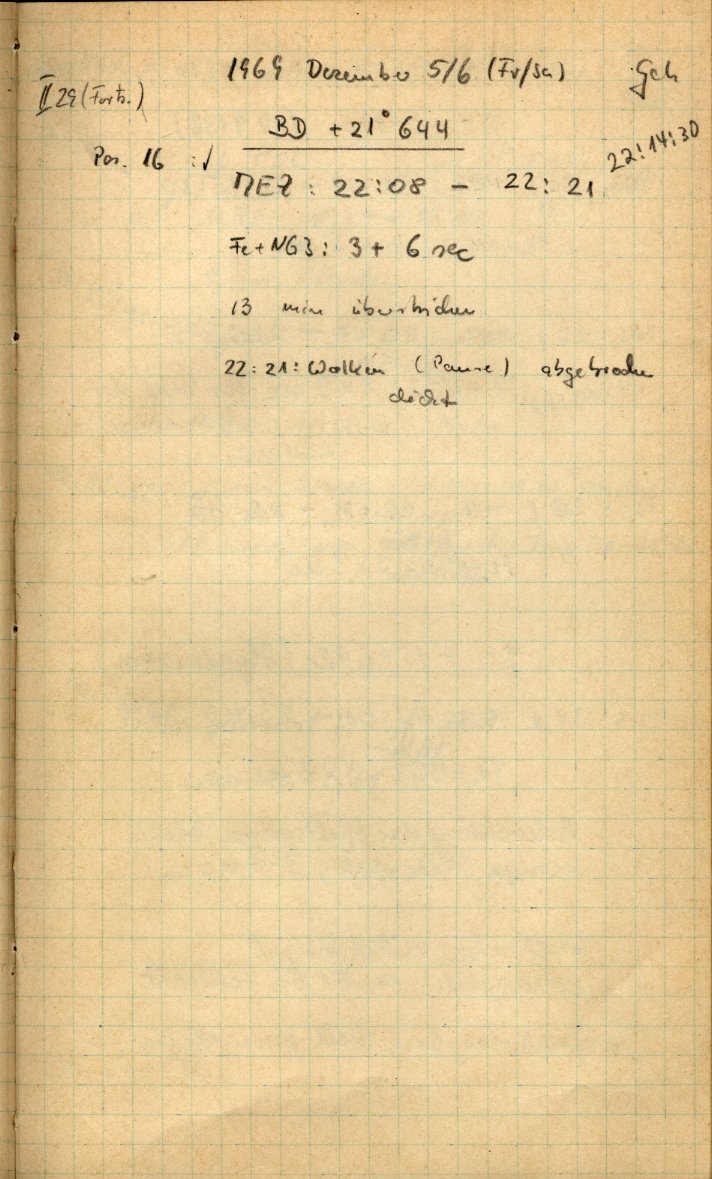 1969 Dezember 5/6 (Fr/Sa) Geh
II 29 (Forts.)
BD +21° 644
22:14:30
Pos. 16 : √
MEZ : 22:08 – 22:21
Fe+NG3: 3 + 6 sec
13 min überstrichen
22:21: Wolken (Pause) abgebrochen
dicht